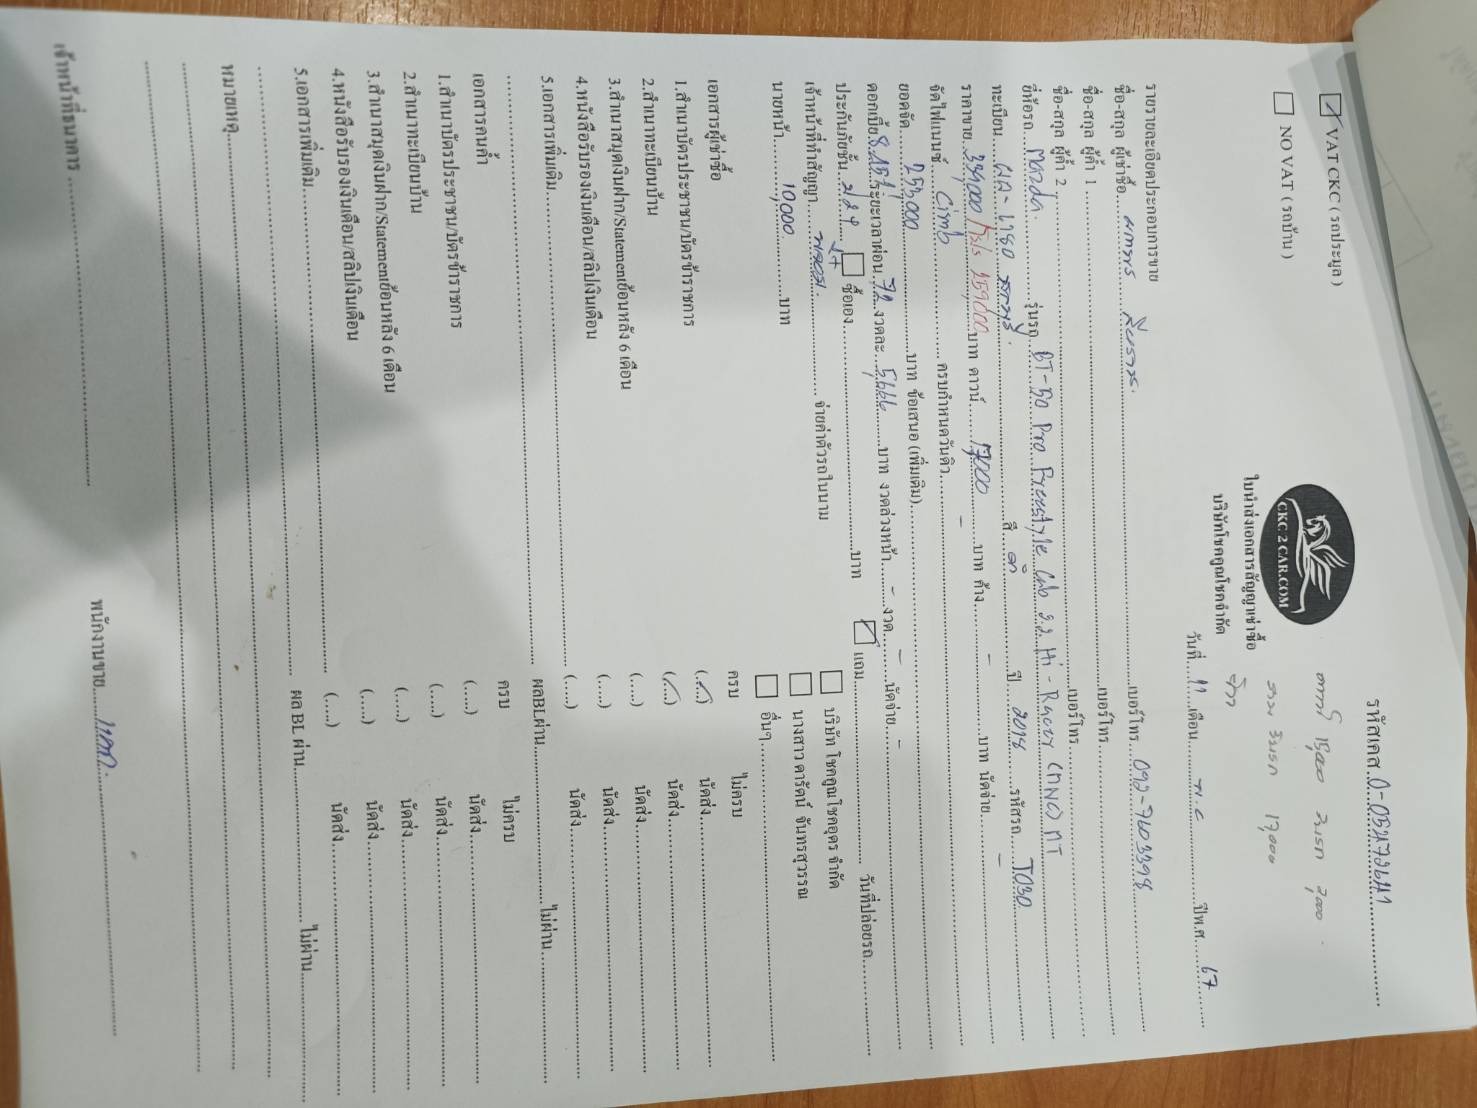 รหัสเคส
VAT CKC ( รถประมูล )
NO VAT ( รถบ้าน )
CKC 2 CAR.COM
ดาวน์ 15,000 3,000
17,000
ใบนำส่งเอกสารสัญญาเช่าซื้อ
บริษัทโชคคูณโชคจำกัด
วันที่ 11 เดือน พ.ค ปีพ.ศ. 67
รายรายละเอียดประกอบการขาย
ชื่อ-สกุล ผู้เช่าซื้อ เบอร์โทร 092-7603398
ชื่อ-สกุล ผู้ค้ำ 1 เบอร์โทร
ชื่อ-สกุล ผู้ค้ำ 2 เบอร์โทร
ยี่ห้อรถ Mazda รุ่นรถ BT-50 Pro Freestyle Cab 2.2 Hi-Racer (MNC) MT
ทะเบียน สี ดำ ปี 2018 รหัสรถ J030
ราคาขาย 339,000 บาท ดาวน์ 17,000 บาท ค้าง - บาท นัดจ่าย -
จัดไฟแนนซ์ Cimb ครบกำหนดวันคิว -
ยอดจัด 259,000 บาท ข้อเสนอ (เพิ่มเติม)
ดอกเบี้ย ระยะเวลาผ่อน 72 งวดละ 5,666 บาท งวดล่วงหน้า - งวด - นัดจ่าย -
ประกันภัยชั้น ซื้อเอง บาท แถม วันที่ปล่อยรถ
เจ้าหน้าที่ทำสัญญา จ่ายค่าตัวรถในนาม บริษัท โชคคูณโชคอุดร จำกัด
นายหน้า 10,000 บาท นางสาว ดารัตน์ จันทรสุวรรณ
อื่นๆ
เอกสารผู้เช่าซื้อ ครบ ไม่ครบ
1.สำเนาบัตรประชาชน/บัตรข้าราชการ (✓) นัดส่ง
2.สำเนาทะเบียนบ้าน (✓) นัดส่ง
3.สำเนาสมุดเงินฝาก/Statementย้อนหลัง 6 เดือน (.....) นัดส่ง
4.หนังสือรับรองเงินเดือน/สลิปเงินเดือน (.....) นัดส่ง
5.เอกสารเพิ่มเติม (.....) นัดส่ง
ผลBLผ่าน ไม่ผ่าน
เอกสารคนค้ำ ครบ ไม่ครบ
1.สำเนาบัตรประชาชน/บัตรข้าราชการ (.....) นัดส่ง
2.สำเนาทะเบียนบ้าน (.....) นัดส่ง
3.สำเนาสมุดเงินฝาก/Statementย้อนหลัง 6 เดือน (.....) นัดส่ง
4.หนังสือรับรองเงินเดือน/สลิปเงินเดือน (.....) นัดส่ง
5.เอกสารเพิ่มเติม (.....) นัดส่ง
ผล BL ผ่าน ไม่ผ่าน
หมายเหตุ
เจ้าหน้าที่ธนาคาร พนักงานขาย